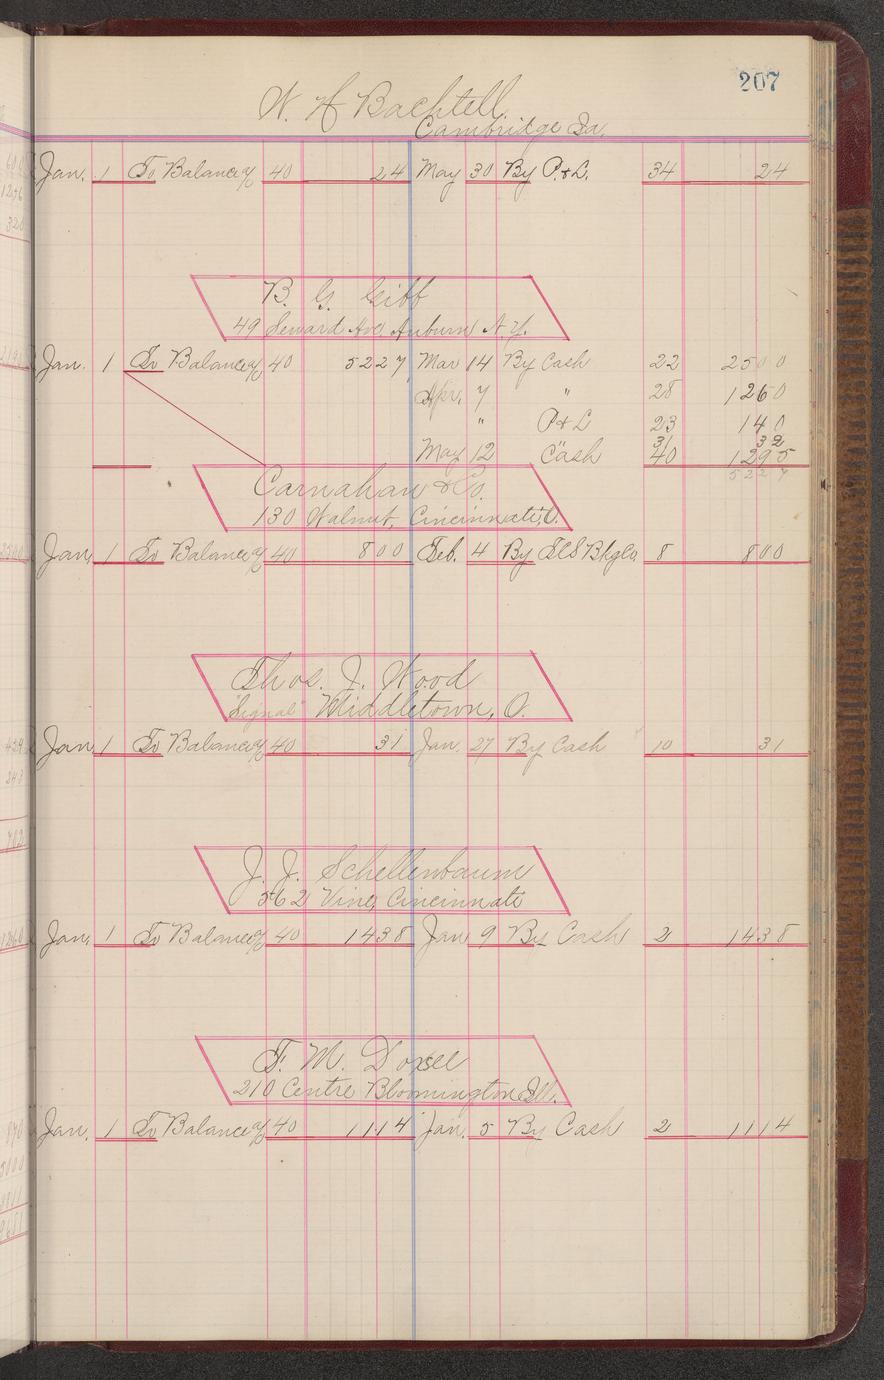 207
W. H. Bachtell
Cambridge Ia.
Jan. 1 To Balance % 40 24 May 30 By P.&L. 34 24
B. G. Gibb
49 Seward Ave, Auburn N.Y.
Jan. 1 To Balance % 40 5227 Mar 14 By Cash 22 2500
Apr. 7 " 28 1260
" P&L 23 140
31 32
May 12 Cash 40 1295
5227
Carnahan & Co.
130 Walnut, Cincinnati, O.
Jan. 1 To Balance % 40 800 Feb. 4 By BkgCo 8 800
Thos. J. Wood
"Signal" Middletown, O.
Jan 1 To Balance % 40 31 Jan. 27 By Cash 10 31
J. J. Schellenbaum
562 Vine, Cincinnati
Jan. 1 To Balance % 40 1438 Jan 9 By Cash 2 1438
F. M.
210 Centre Bloomington Ill.
Jan. 1 To Balance % 40 1114 Jan. 5 By Cash 2 1114